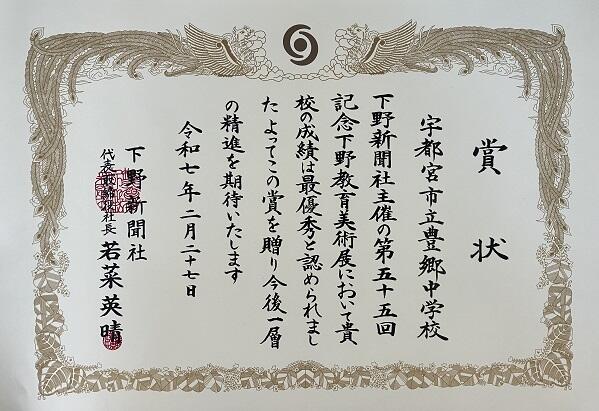 賞状
宇都宮市立豊郷中学校
下野新聞社主催の第五十五回
記念下野教育美術展において貴
校の成績は最優秀と認められまし
たよってこの賞を贈り今後一層
の精進を期待いたします
令和七年二月二十七日
下野新聞社
代表取締役社長 若菜英晴